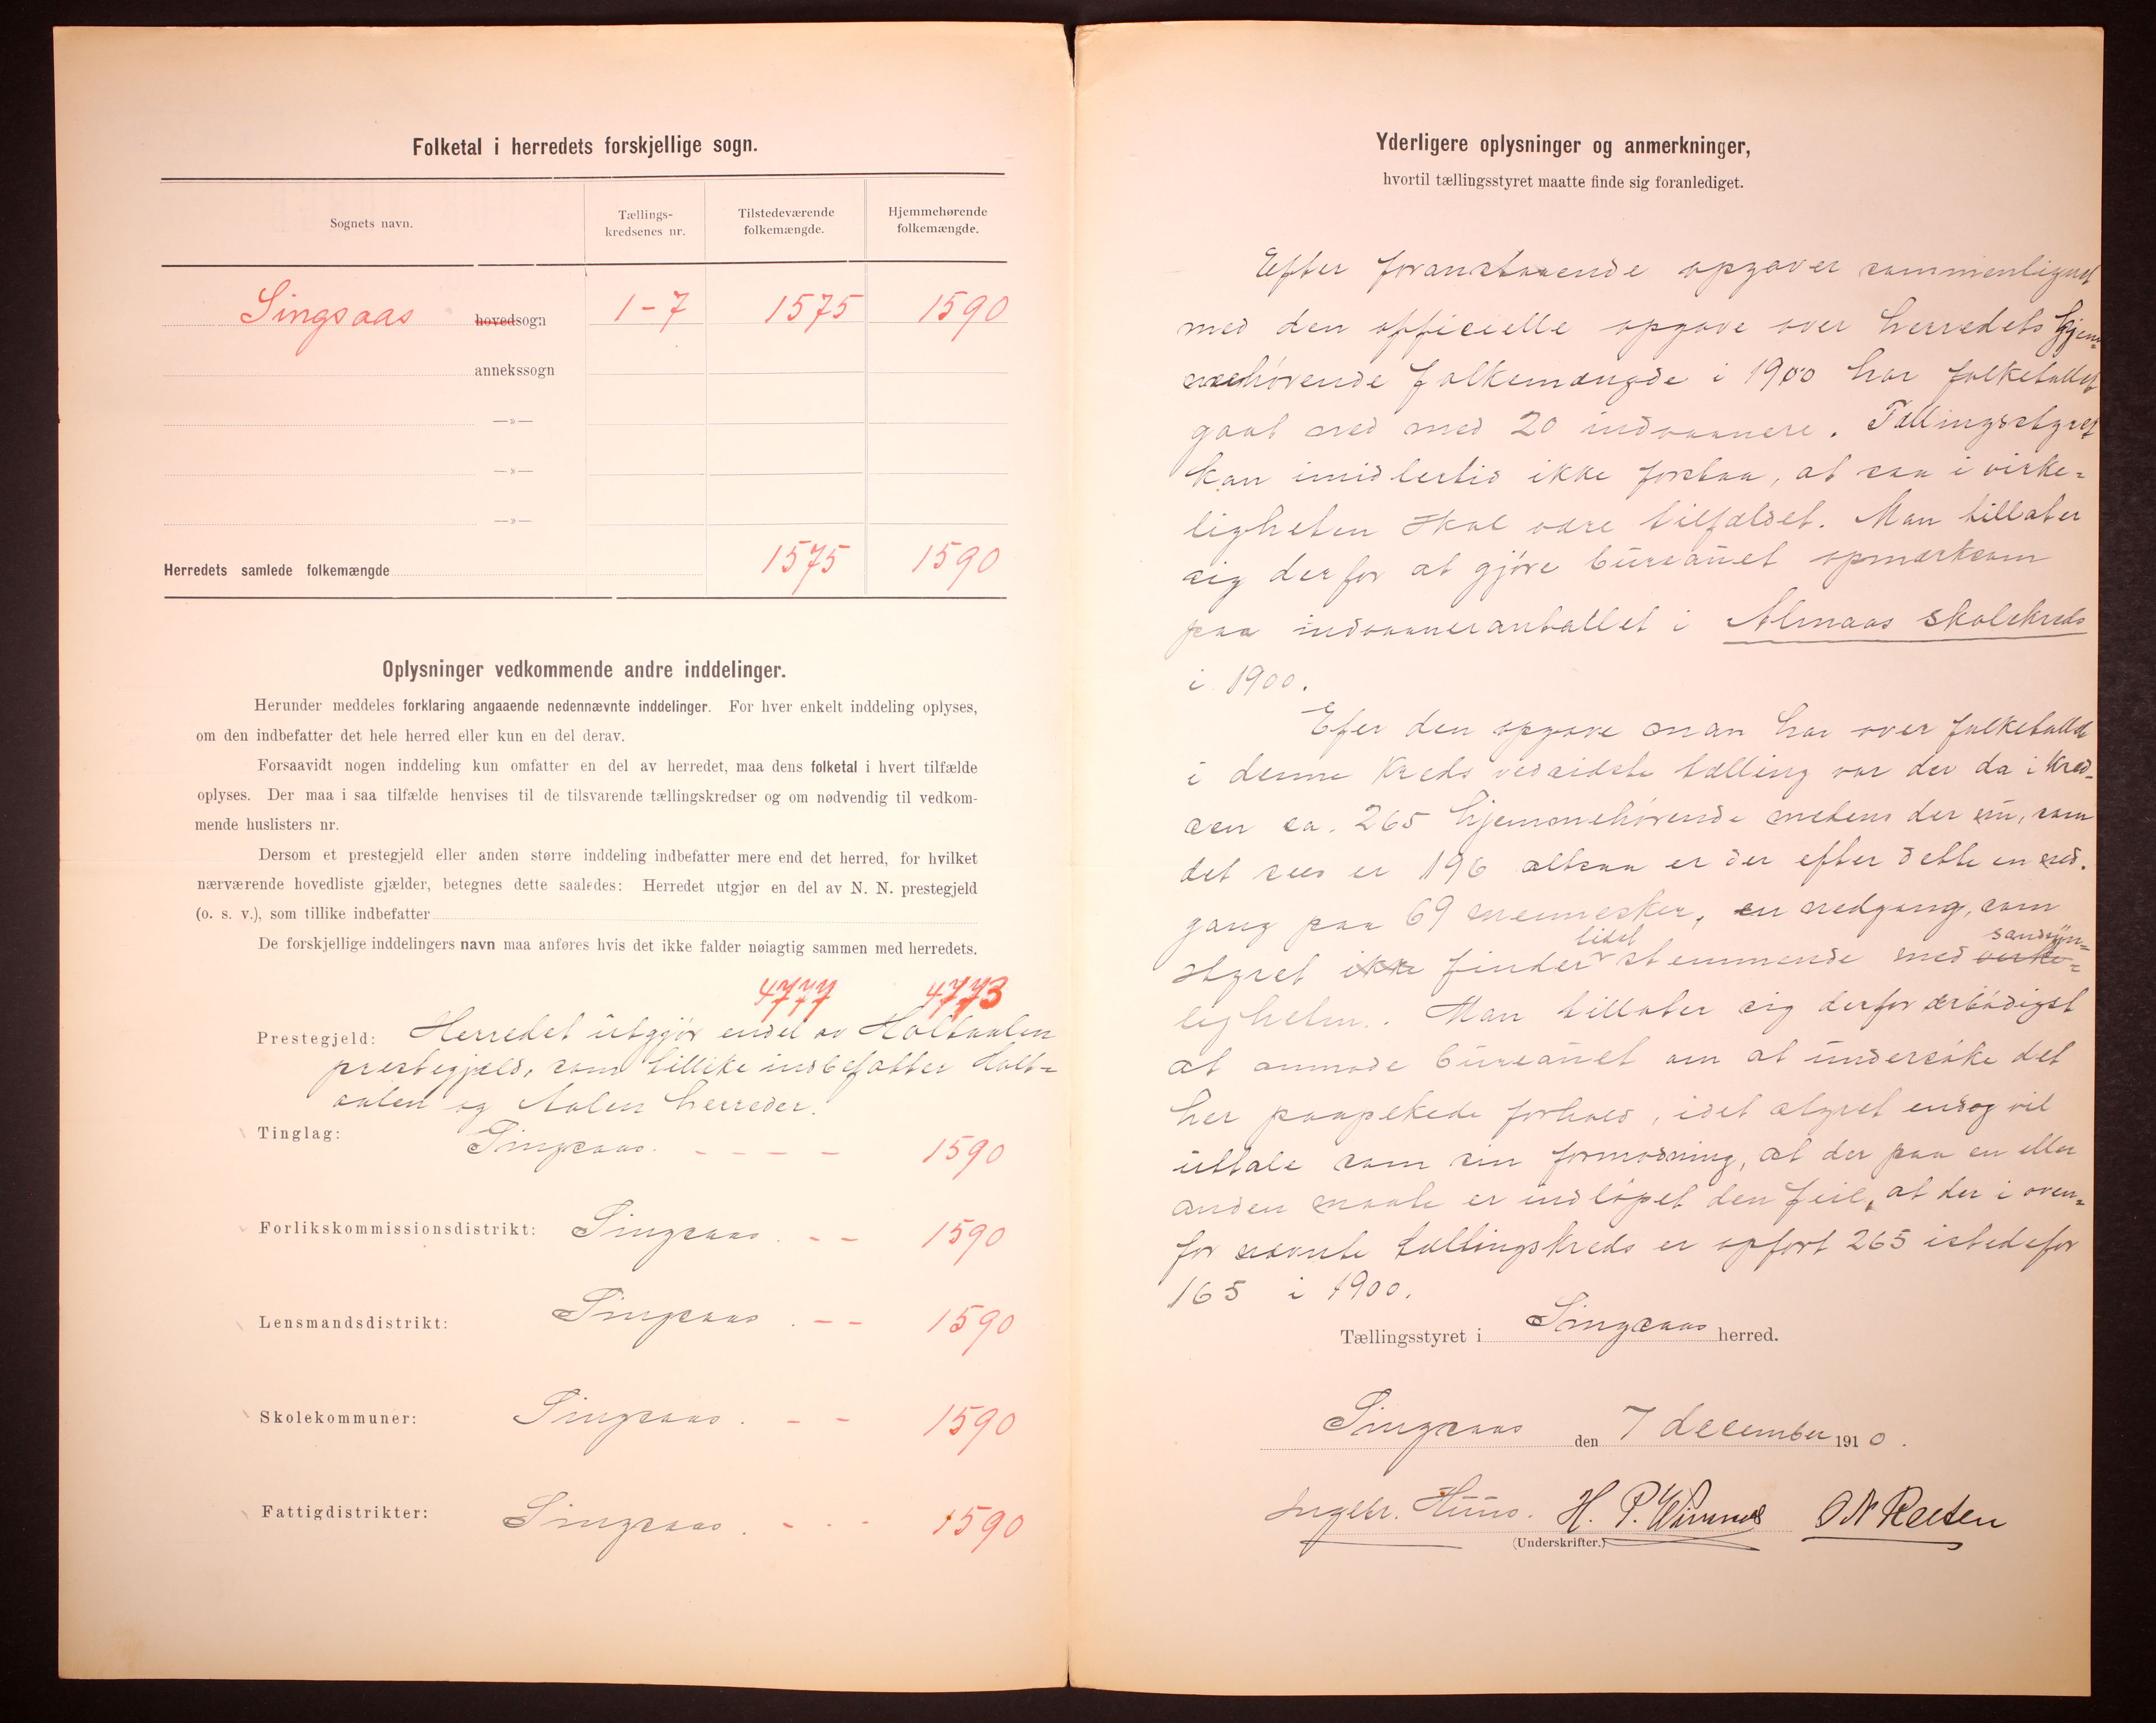 Folketal i herredets forskjellige sogn.
Sognets navn.
Tællings-
kredsenes nr.
Tilstedeværende
folkemængde.
Hjemmehørende
folkemængde.
Singsaas hovedsogn 1-7 1575 1590
annekssogn
—»—
—»—
—»—
Herredets samlede folkemængde 1575 1590
Oplysninger vedkommende andre inddelinger.
Herunder meddeles forklaring angaaende nedennævnte inddelinger. For hver enkelt inddeling oplyses,
om den indbefatter det hele herred eller kun en del derav.
Forsaavidt nogen inddeling kun omfatter en del av herredet, maa dens folketal i hvert tilfælde
oplyses. Der maa i saa tilfælde henvises til de tilsvarende tællingskredser og om nødvendig til vedkom-
mende huslisters nr.
Dersom et prestegjeld eller anden større inddeling indbefatter mere end det herred, for hvilket
nærværende hovedliste gjælder, betegnes dette saaledes: Herredet utgjør en del av N. N. prestegjeld
(o. s. v.), som tillike indbefatter
De forskjellige inddelingers navn maa anføres hvis det ikke falder nøiagtig sammen med herredets.
4777 4773
Prestegjeld: Herredet utgjør endel av Holtaalen
prestegjeld, som tillike indbefatter Holt-
aalen og Aalen herreder.
Tinglag: Singsaas. - - - - 1590
Forlikskommissionsdistrikt: Singsaas. - - 1590
Lensmandsdistrikt: Singsaas. - - 1590
Skolekommuner: Singsaas. - - 1590
Fattigdistrikter: Singsaas. - - - 1590
Yderligere oplysninger og anmerkninger,
hvortil tællingsstyret maatte finde sig foranlediget.
Efter foranstaaende opgaver sammenlignet
med den officielle opgave over herredets hjem-
mehørende folkemængde i 1900 har folketallet
gaat ned med 20 indvaanere. Tællingsstyret
kan imidlertid ikke forstaa, at saa i virke-
ligheten skal være tilfældet. Man tillater
sig derfor at gjøre bureauet opmerksom
paa indvaanerantallet i Almaas skolekreds
i 1900.
Efer den opgave man har over folketallet
i denne kreds ved sidste tælling var der da i kred-
sen ca. 265 hjemmehørende medens der nu, som
det sees er 196 altsaa er der efter dette en ned-
gang paa 69 mennesker, en nedgang, som
styret ikke finder litet stemmende med virke- sandsyn-
ligheten. Man tillater sig derfor ærbødigst
at anmode bureauet om at undersøke det
her paapekede forhold, idet styret endog vil
uttale som sin formodning, at der paa en eller
anden maate er indløpet den feil, at der i oven-
for nævnte tællingskreds er opført 265 istedefor
165 i 1900.
Tællingsstyret i Singsaas herred.
Singsaas den 7 december 1910.
Ingebr. Huus. H. P. O N Reitan
(Underskrifter.)